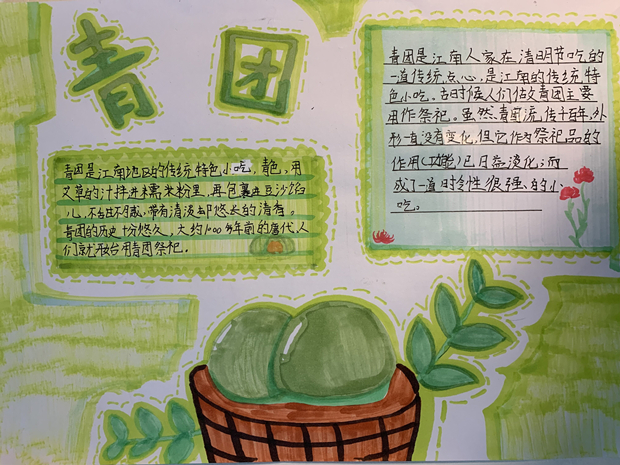 青团
青团是江南地区的传统特色小吃。青色,用
艾草的汁拌进糯米粉里,再包裹进豆沙馅
儿,不甜不腻,带有清淡却悠长的清香。
青团的历史十分悠久,大约1000多年前的唐代,人
们就开始用青团祭祀。
青团是江南人家在清明节吃的
一道传统点心,是江南的传统特
色小吃。古时候人们做青团主要
用作祭祀。虽然,青团流传千百年,外
形一直没有变化,但它作为祭祀品的
作用(功能)已日益淡化,而
成了一道时令性很强的小
吃。